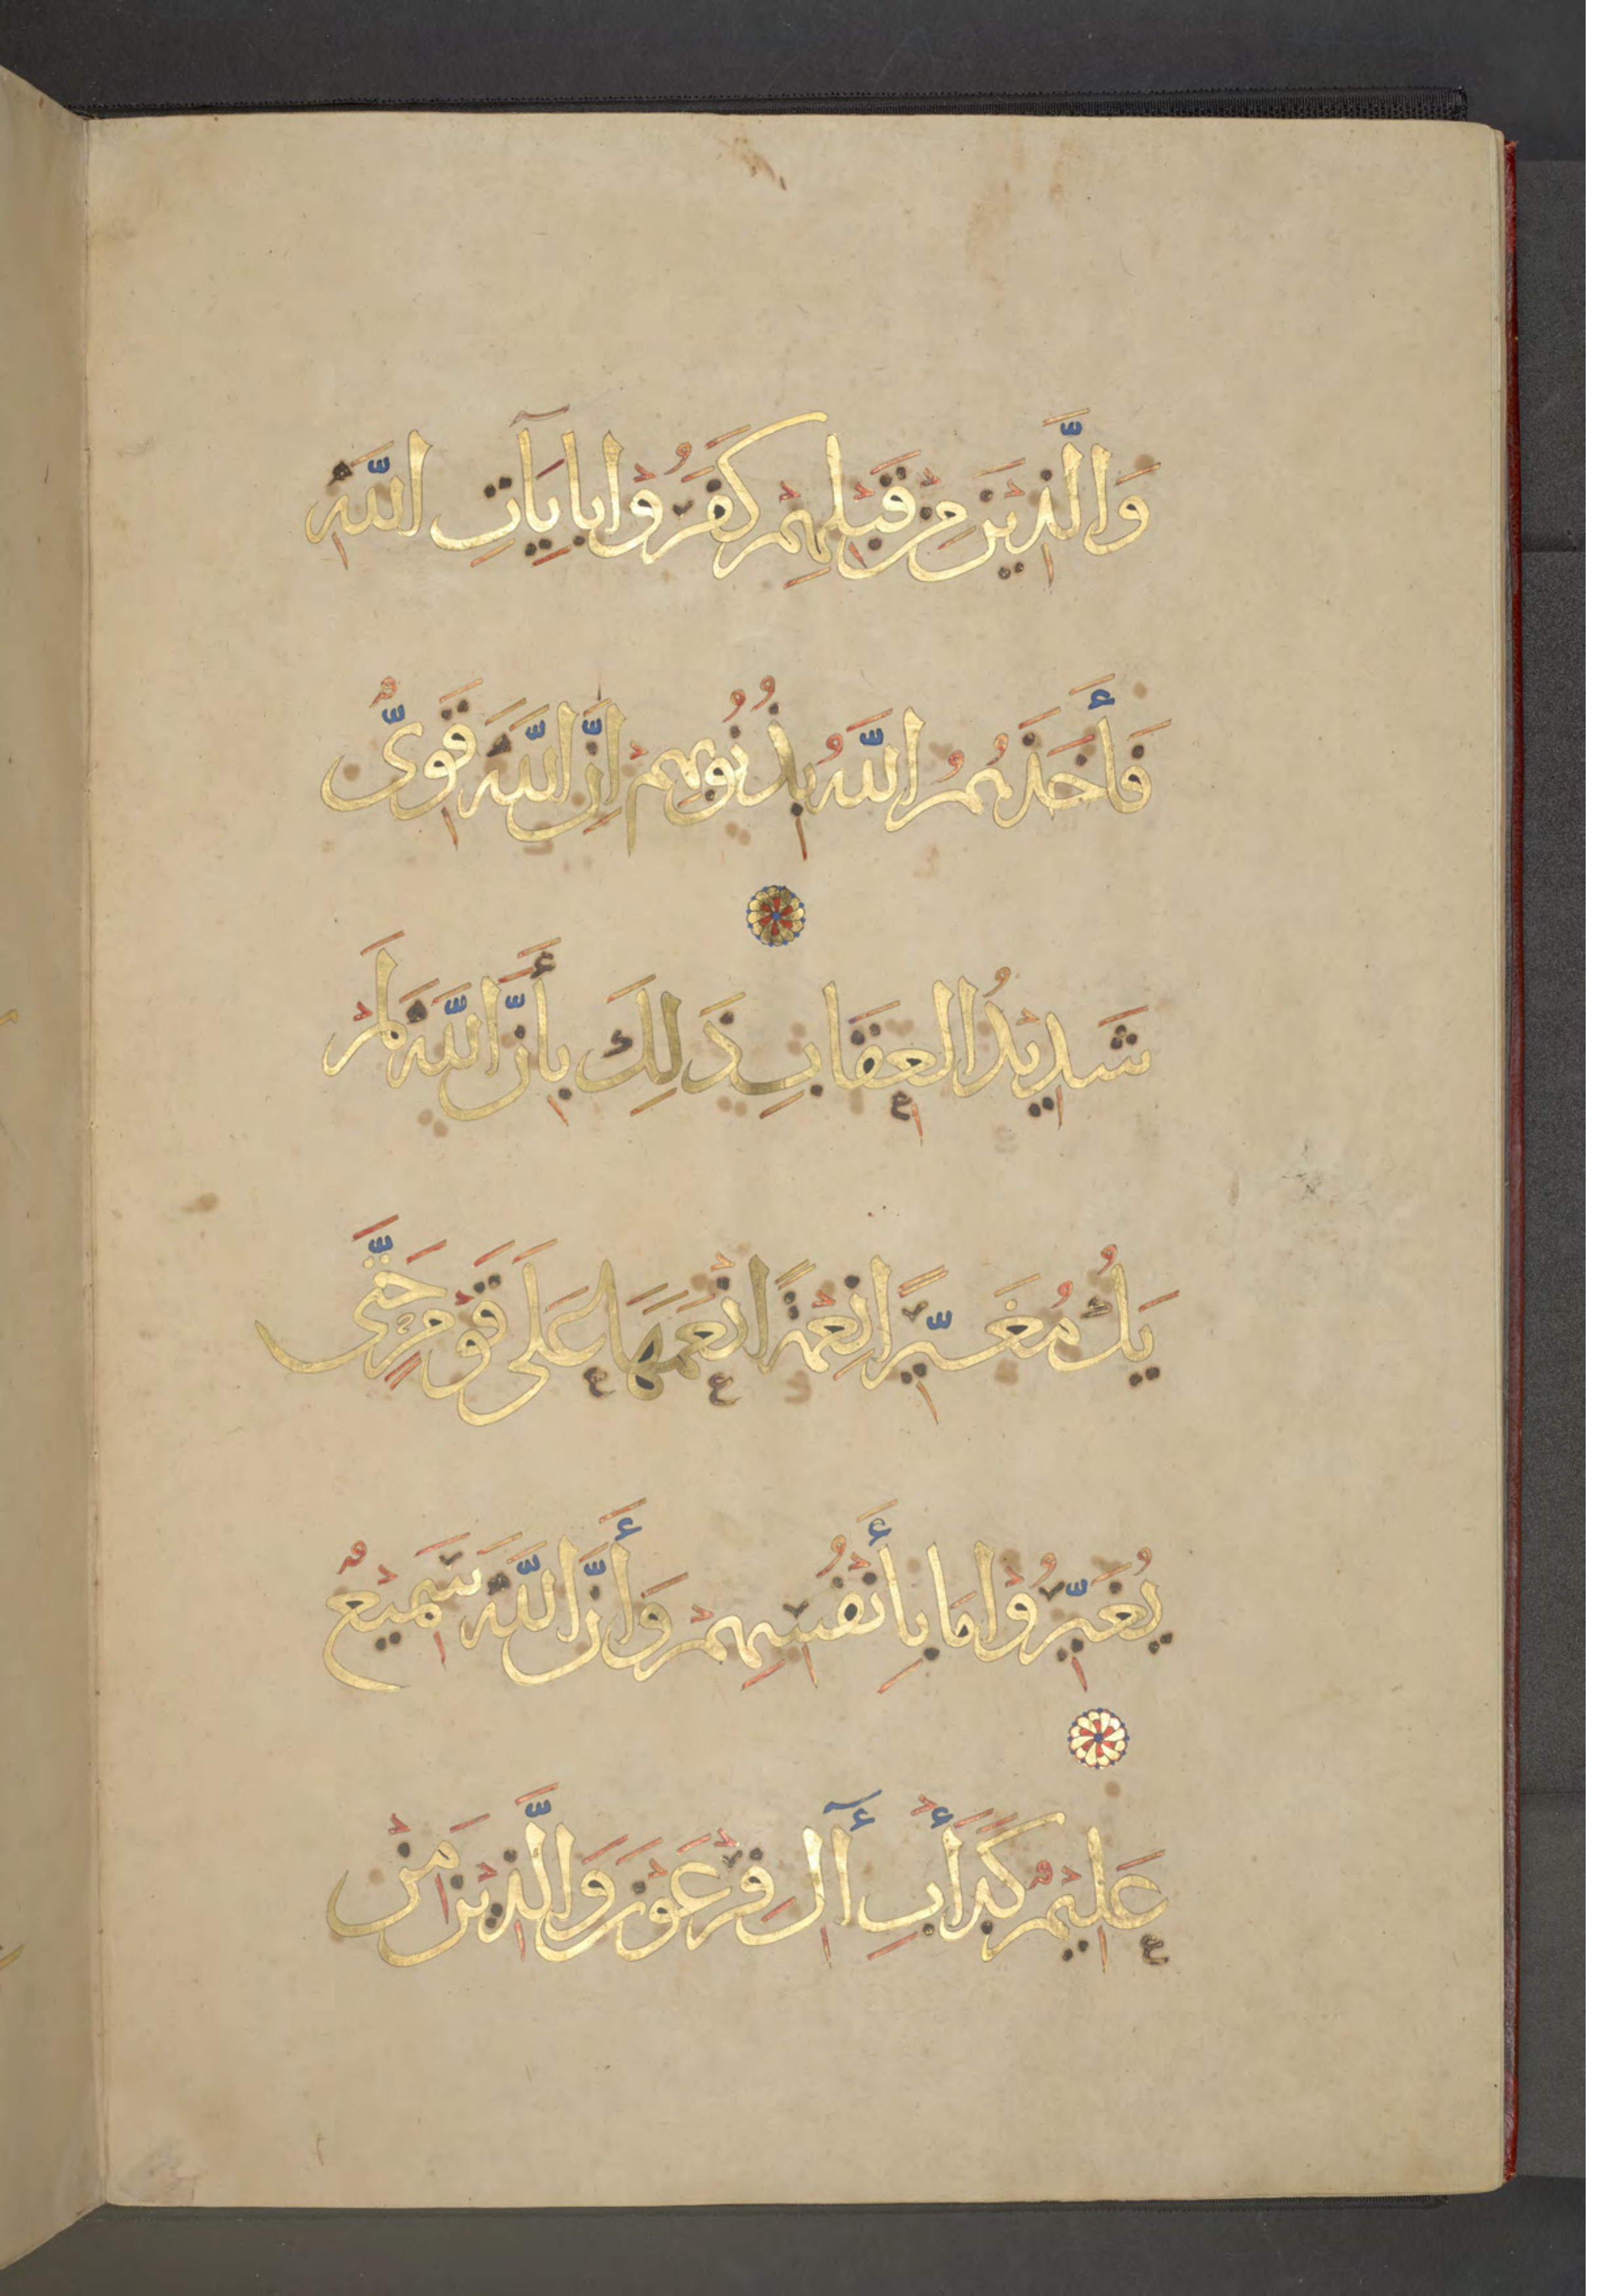 وَالَّذِيْنَ مِنْ قَبْلِهِمْ كَفَرُوْا بِاٰيَاتِ اللَّهِ
فَأَخَذَهُمُ اللَّهُ بِذُنُوبِهِمْ اِنَّ اللَّهَ قَوِىٌّ
شَدِيْدُ الْعِقَابِ ذَلِكَ بِأَنَّ اللَّهَ لَمْ
يَكُ مُغَيِّرًا نِعْمَةً اَنْعَمَهَا عَلَى قَوْمٍ حَتَّى
يُغَيِّرُوْا مَا بِأَنْفُسِهِمْ وَأَنَّ اللَّهَ سَمِيْعٌ
عَلِيْمٌ كَدَأْبِ أٓلِ فِرْعَوْنَ وَالَّذِيْنَ مِنْ